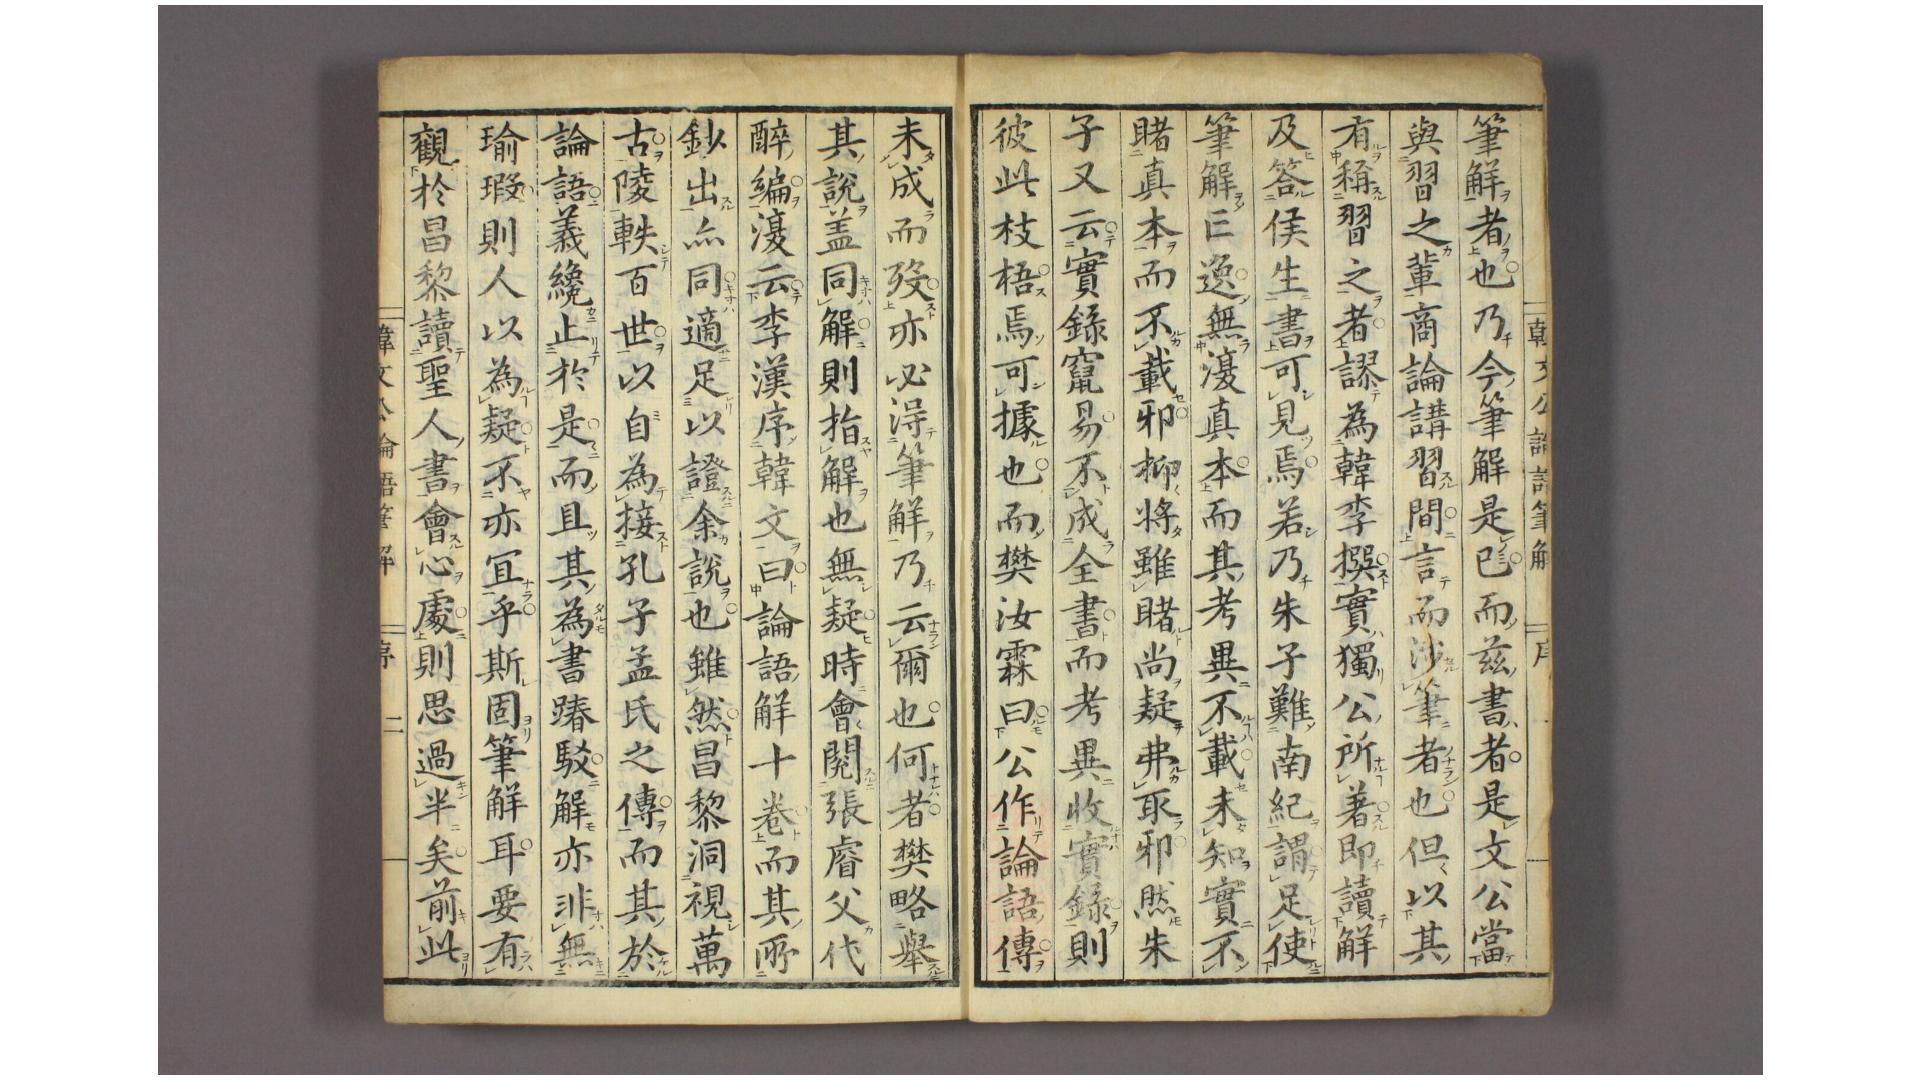 筆解者也乃今筆解是已而茲書者是文公當
與習之輩商論講習間言而沙筆者也但以其
有稱習之者謬為韓李撰實獨公所著即讀解
及答侯生書可見焉若乃朱子難南紀謂足使
筆解巨逸無復真本而其考異不載未知實不
睹真本而不載邪抑將雖睹尚疑弗取邪然朱
子又云實錄竄易不成全書而考異收實錄則
彼此枝梧焉可據也而樊汝霖曰公作論語傳
未成而歿亦必淂筆解乃云爾也何者樊略舉
其說盖同解則指解也無疑時會閱張睿父代
醉編復云李漢序韓文曰論語解十卷而其所
鈔出亦同適足以證余說也雖然昌黎洞視萬
古陵軼百世以自為接孔子孟氏之傳而其於
論語義纔止於是而且其為書踳駁解亦非無
瑜瑕則人以為疑不亦宜乎斯固筆解耳要有
觀於昌黎讀聖人書會心處則思過半矣前此
韓文公論語筆解 序 一
韓文公論語筆解 序 二